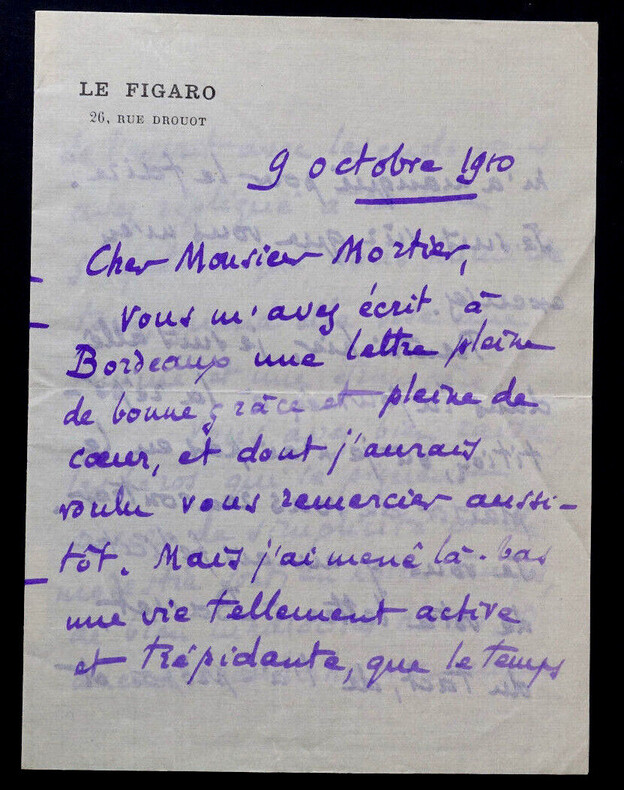 LE FIGARO
26, RUE DROUOT
9 octobre 1910
Cher Monsieur Mortier,
vous m'avez écrit à
Bordeaux une lettre pleine
de bonne grâce et pleine de
cœur, et dont j'aurais
voulu vous remercier aussi-
tôt. Mais j'ai mené là-bas
une vie tellement active
et trépidante, que le temps